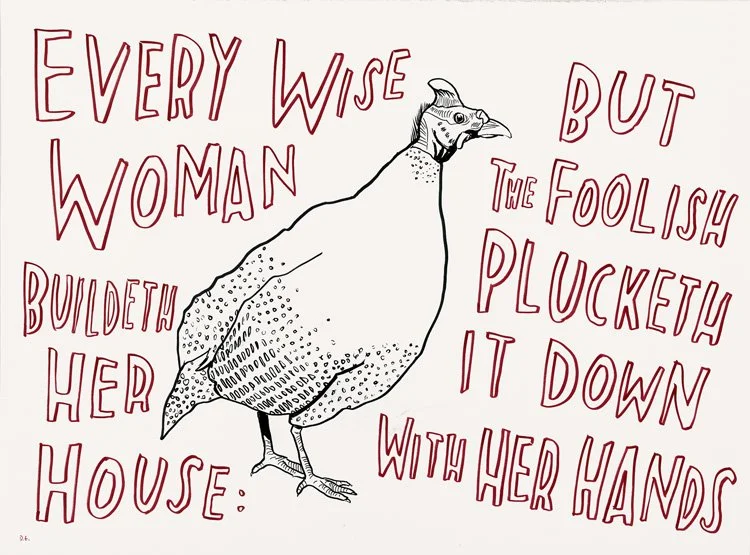 EVERY WISE
WOMAN
BUILDETH
HER
HOUSE:
BUT
THE FOOLISH
PLUCKETH
IT DOWN
WITH HER HANDS
D.G.